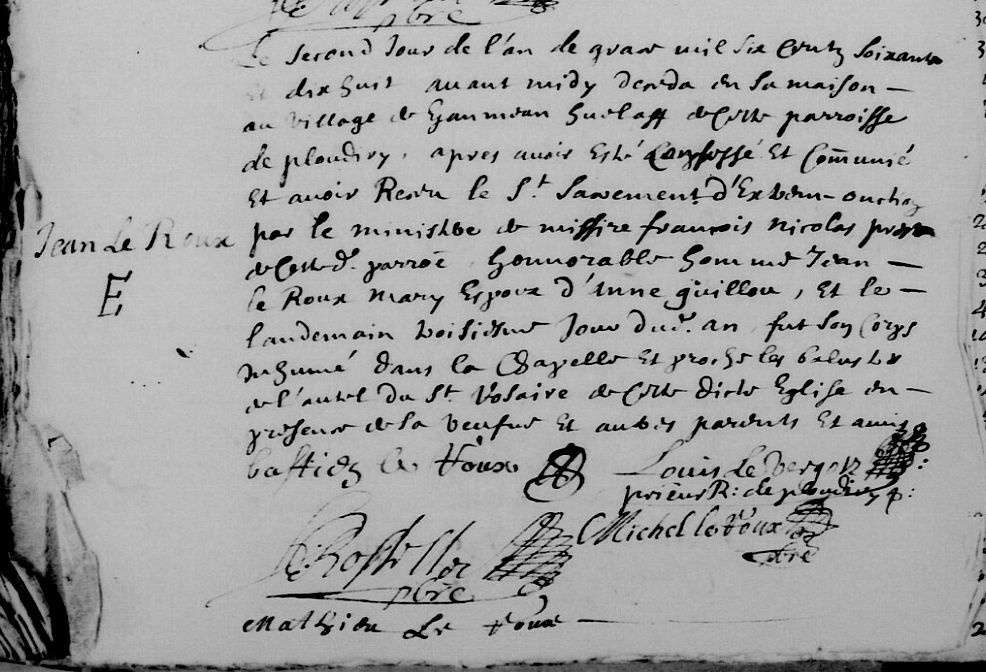 pbre
Le second Jour de l'an de grace mil six centz soixante
Et dix huit avant midy deceda en sa maison —
au village de huelaff de Cette parroisse
de ploudiry, apres avoir Esté Confessé Et Com̃unié
Et avoir Receu le St. Sacrement d'Extreme-onction
par le ministre de missire francois Nicolas prestre
de Cette d. parroē, honnorable homme Jean —
le Roux mary Espoux d'Anne guillou, Et le —
landemain troisiesme Jour dud. an, fut son Corps
Inhumé dans la Chapelle Et proche les balustre
de l'autel du St. Rosaire de Cette dicte Eglise en —
presence de sa veufve Et autres parents Et amis
Jean Le Roux
E
bastien le Roux
Louis le Vergoz
prieur R: de ploudiry p:
Michel le Roux
pbre
pbre
Mathieu Le Roux —